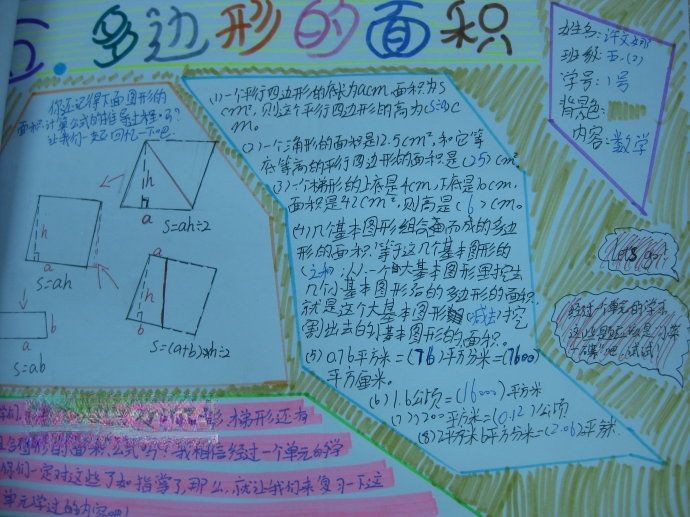 五. 多边形的面积
你还记得下面图形的
面积计算公式的推导过程吗？
让我们一起回忆一下吧
h
a
S=ah÷2
h
a
S=ah
a
h
b
S=(a+b)×h÷2
b
a
S=ab
(1)一个平行四边形的底长为acm,面积为S
cm²,则这个平行四边形的高为(S÷a)c
m。
()一个三角形的面积是12.5cm²,和它等
底等高的平行四边形的面积是(25)cm²
()一个梯形的上底是4cm,下底是10cm,
面积是42cm²,则高是(6)cm。
(4)几个基本图形组合而成的多边
形的面积,等于这几个基本图形的
(之和);一个大基本图形里挖去
几个小基本图形后的多边形的面积
就是这个大基本图形(减去)挖
(割)出去的小基本图形的面积。
(5) 0.76平方米=(76)平方分米=(7600)
平方厘米。
(6) 1.6公顷=(16000)平方米
(7) 1200平方米=(0.12)公顷
(8)2平方米6平方分米=(2.06)平方米
姓名:许文
班级:五.(2)
学号:1号
背景色:
内容:数学
Let's go!
经过一个单元的学习
这些题应该是小菜
一碟吧,试试
形,梯形还有
组合图形的面积公式吗？我相信经过一个单元的学
你们一定对这些了如指掌了,那么,就让我们来复习一下这
单元学过的内容吧!